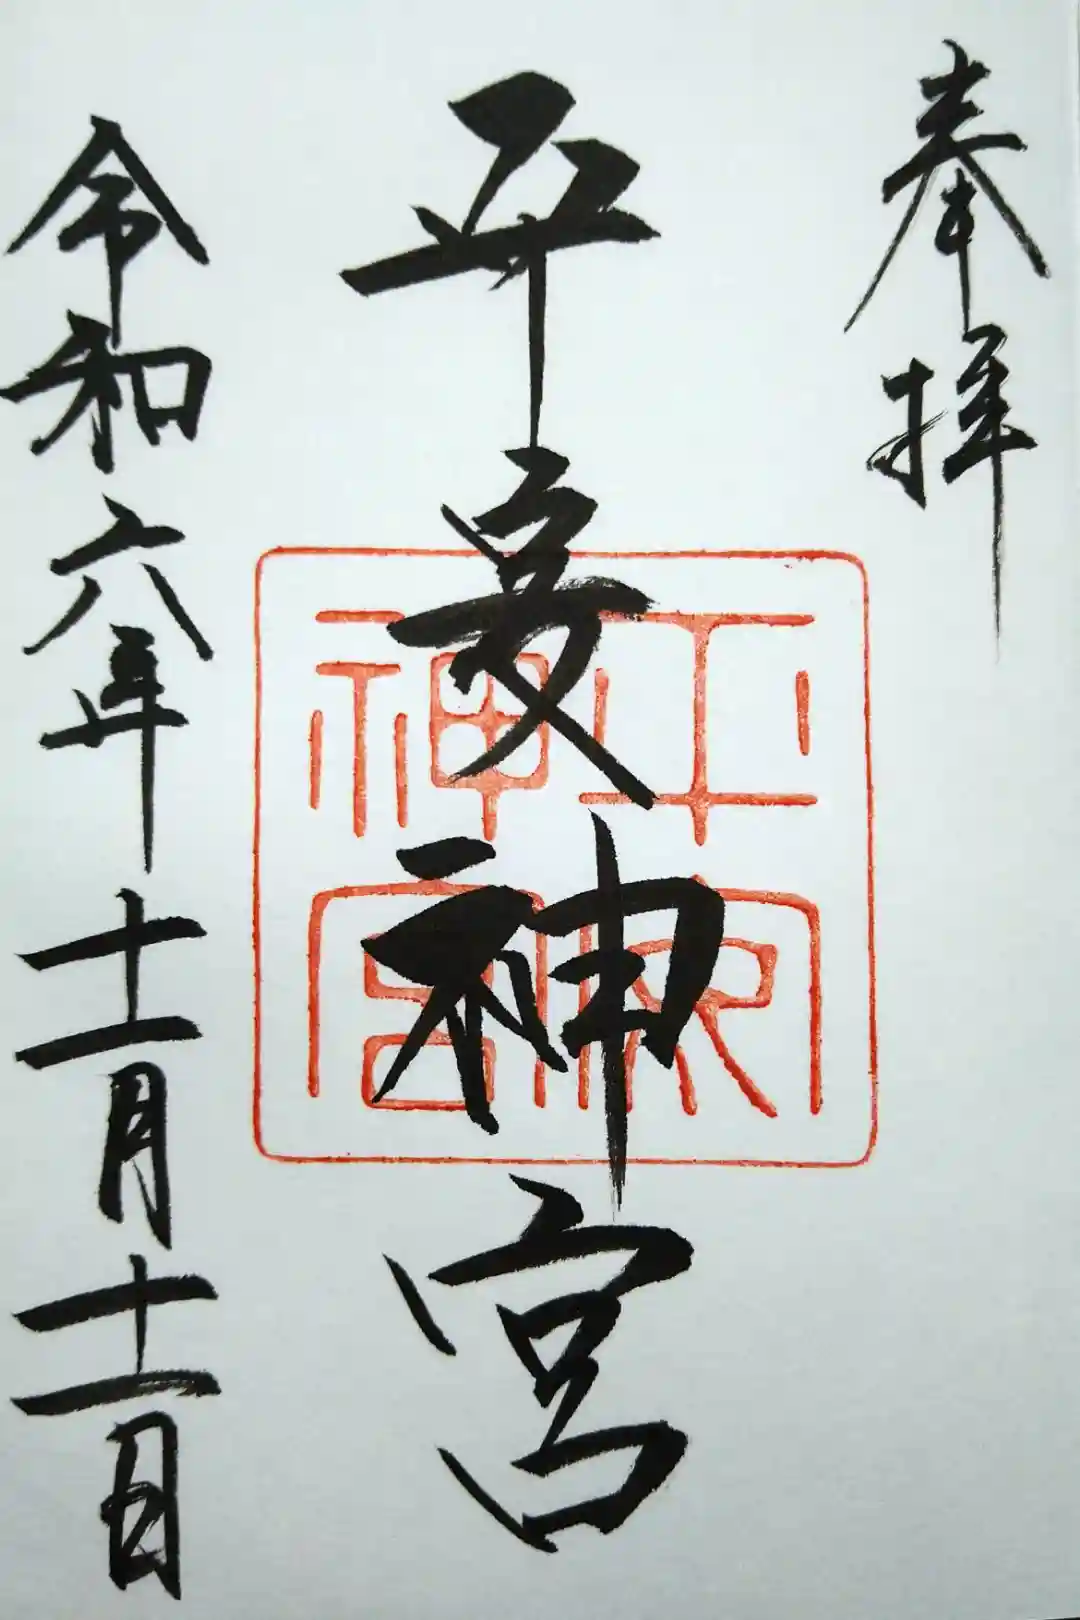 奉拝
平安神宮
平安神宮
令和六年十一月十一日